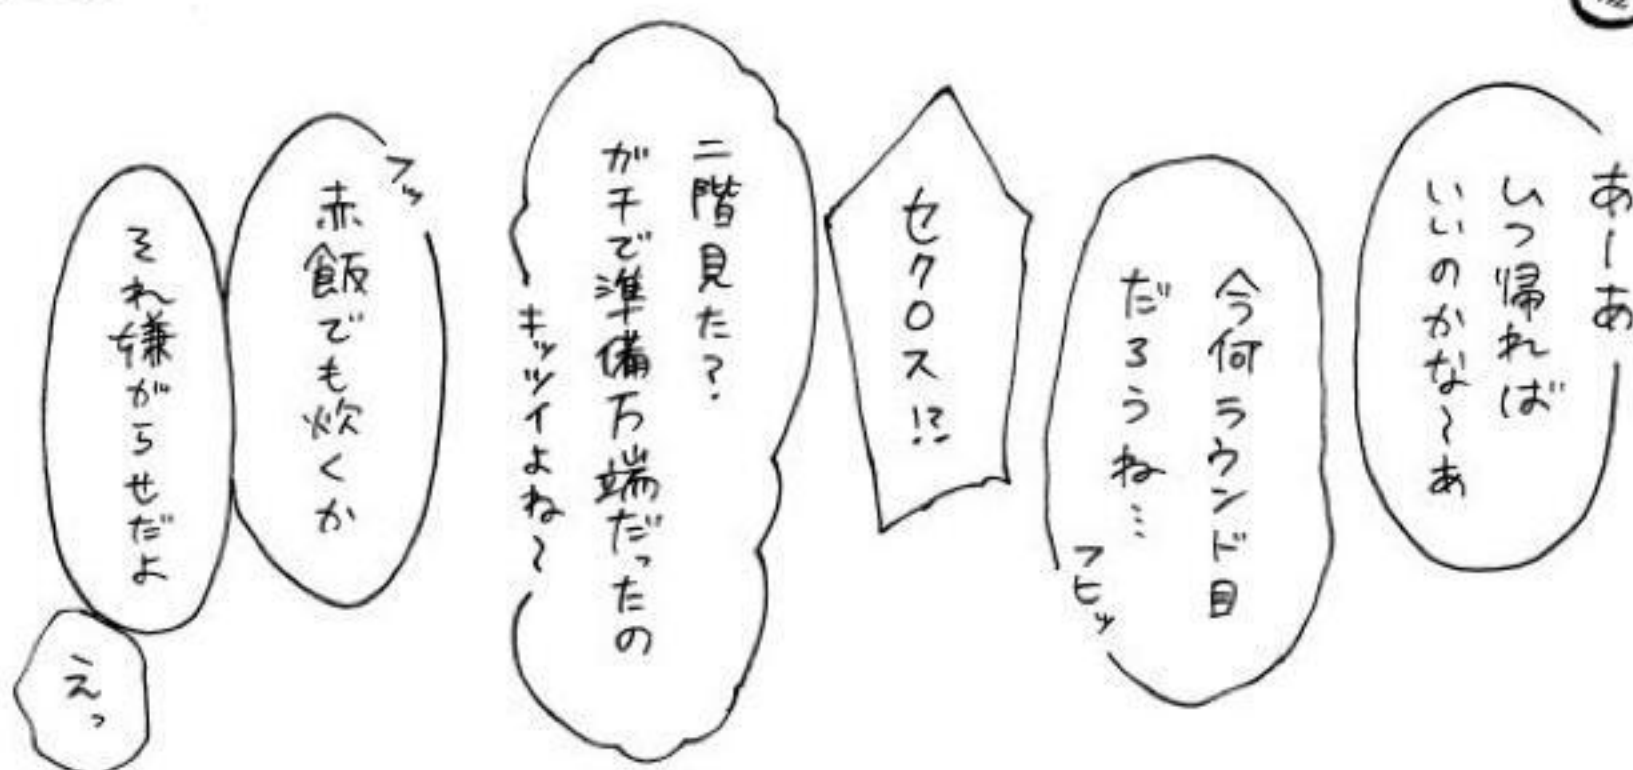 あーあ
いつ帰れば
いいのかな～あ
今何ラウンド目
だろうね…
フヒッ
セクロス!?
二階見た?
ガチで準備万端だったの
キッツイよね～
フッ
赤飯でも炊くか
それ嫌がらせだよ
えっ